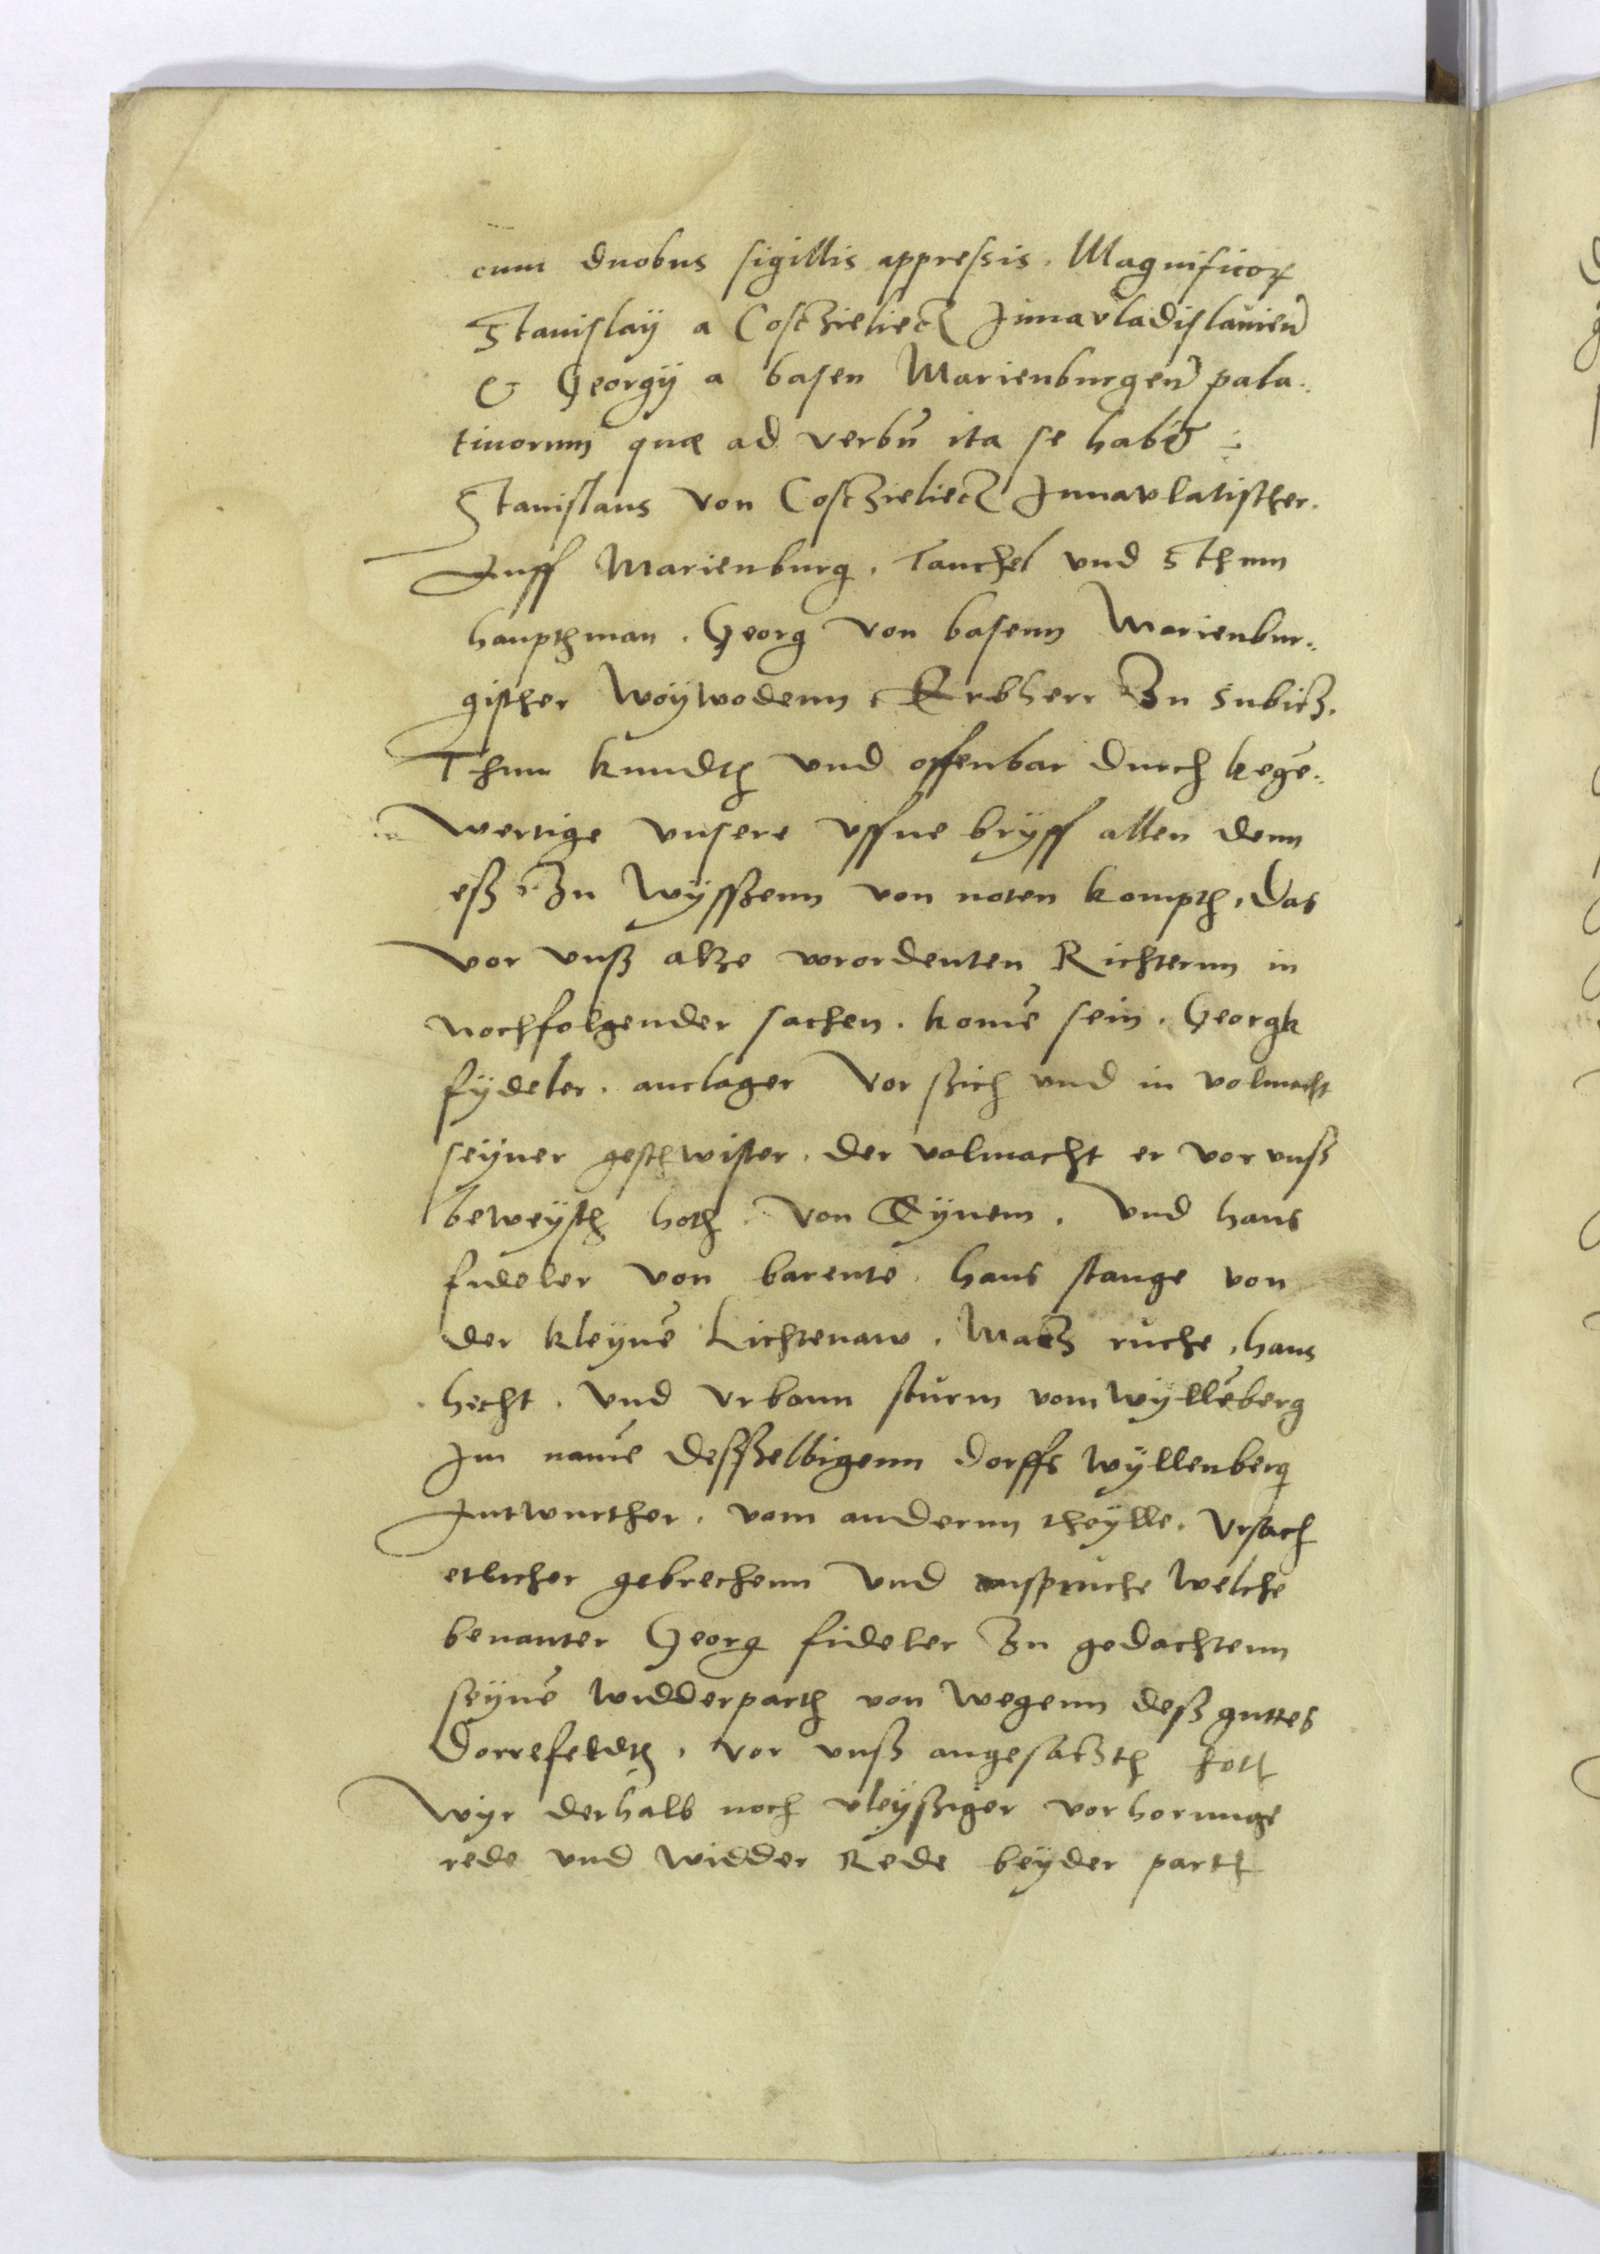 cum duobus sigillis appressis. Magnificorꝝ
Stanislaÿ a Costzielietz Junavladislavien̄
& Georgÿ a basen Marienburgen̄ pala..
tinorum quæ ad verbū ita se habēt :
Stanislaus von Costzielietz Junavlatischer.
Auff Marienburg. Tauchel vnd Sthum
haupthman. Georg von basenn Marienbur..
gischer Woÿwodenn. Erbherr Zu Subitz.
Thun kundth vnd offenbar durch kegē..
wertige vnsere vffne brÿff allen denn
eß Zu wÿsßenn von noten kompth, das
vor vnß alße vorordenten Richternn in
nochfolgender sachen. komē sein. Georgk
fÿdeler. anclager vor ßich vnd in volmacht
seÿner geschwister. der volmacht er vor vnß
beweÿsth hoth. von Eÿnem. vnd hans
fideler von barente. hans stange von
der kleÿnē Lichtenaw. Matz ruche, hans
hecht. vnd Vrbann sturm vom wÿllēberg
Im namē desßelbigenn dorffs wÿllenberg
Antwurther. vom andernn theÿlle. Vrsach
etlicher gebrechenn vnd anspruche welche
benanter Georg fideler Zu gedachtenn
seÿnē widderparth von wegenn deß guttes
Dorrefeldth. vor vnß angesatzth hott
Wÿr derhalb noch vleÿßiger vorhorunge
rede vnd widder Rede beÿder partt